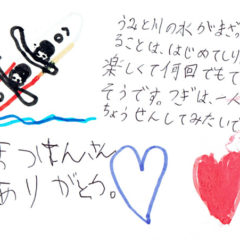 うみと川の水がまざ
ることは、はじめてしり
楽しくて何回でもて
そうです。つぎは、一人
ちょうせんしてみたいで
まつはんさん
ありがとう。